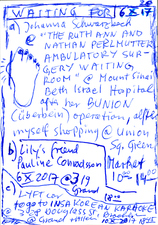 28
WAITING FOR 6 X 2017
a) Johanna Schwarzbeck
@ "THE RUTH ANN AND
NATHAN PERLMUTTER
AMBULATORY SUR-
GERY WAITING
ROOM" @ Mount Sinai
Beth Israel Hospital
after her BUNION
(überbein) operation, after
myself shopping @ Union
Sq. Green
Market
10ºº - 14ºº
b) Lily's friend
Pauline
6 X 2017 @ 319
Grand
c) LYFT car 18ºº
to go to INSA KOREAN KARAOKE
@ 328 Douglass St. Brooklyn
@ Grand 10 X 2017